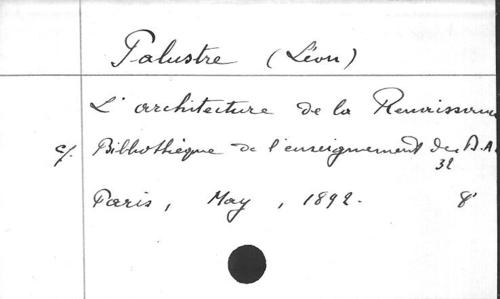 Palustre (Léon)
L'architecture de la Renaissance
c/. Bibliothèque de l'enseignement des B.A.
32
Paris, May, 1892. 8°